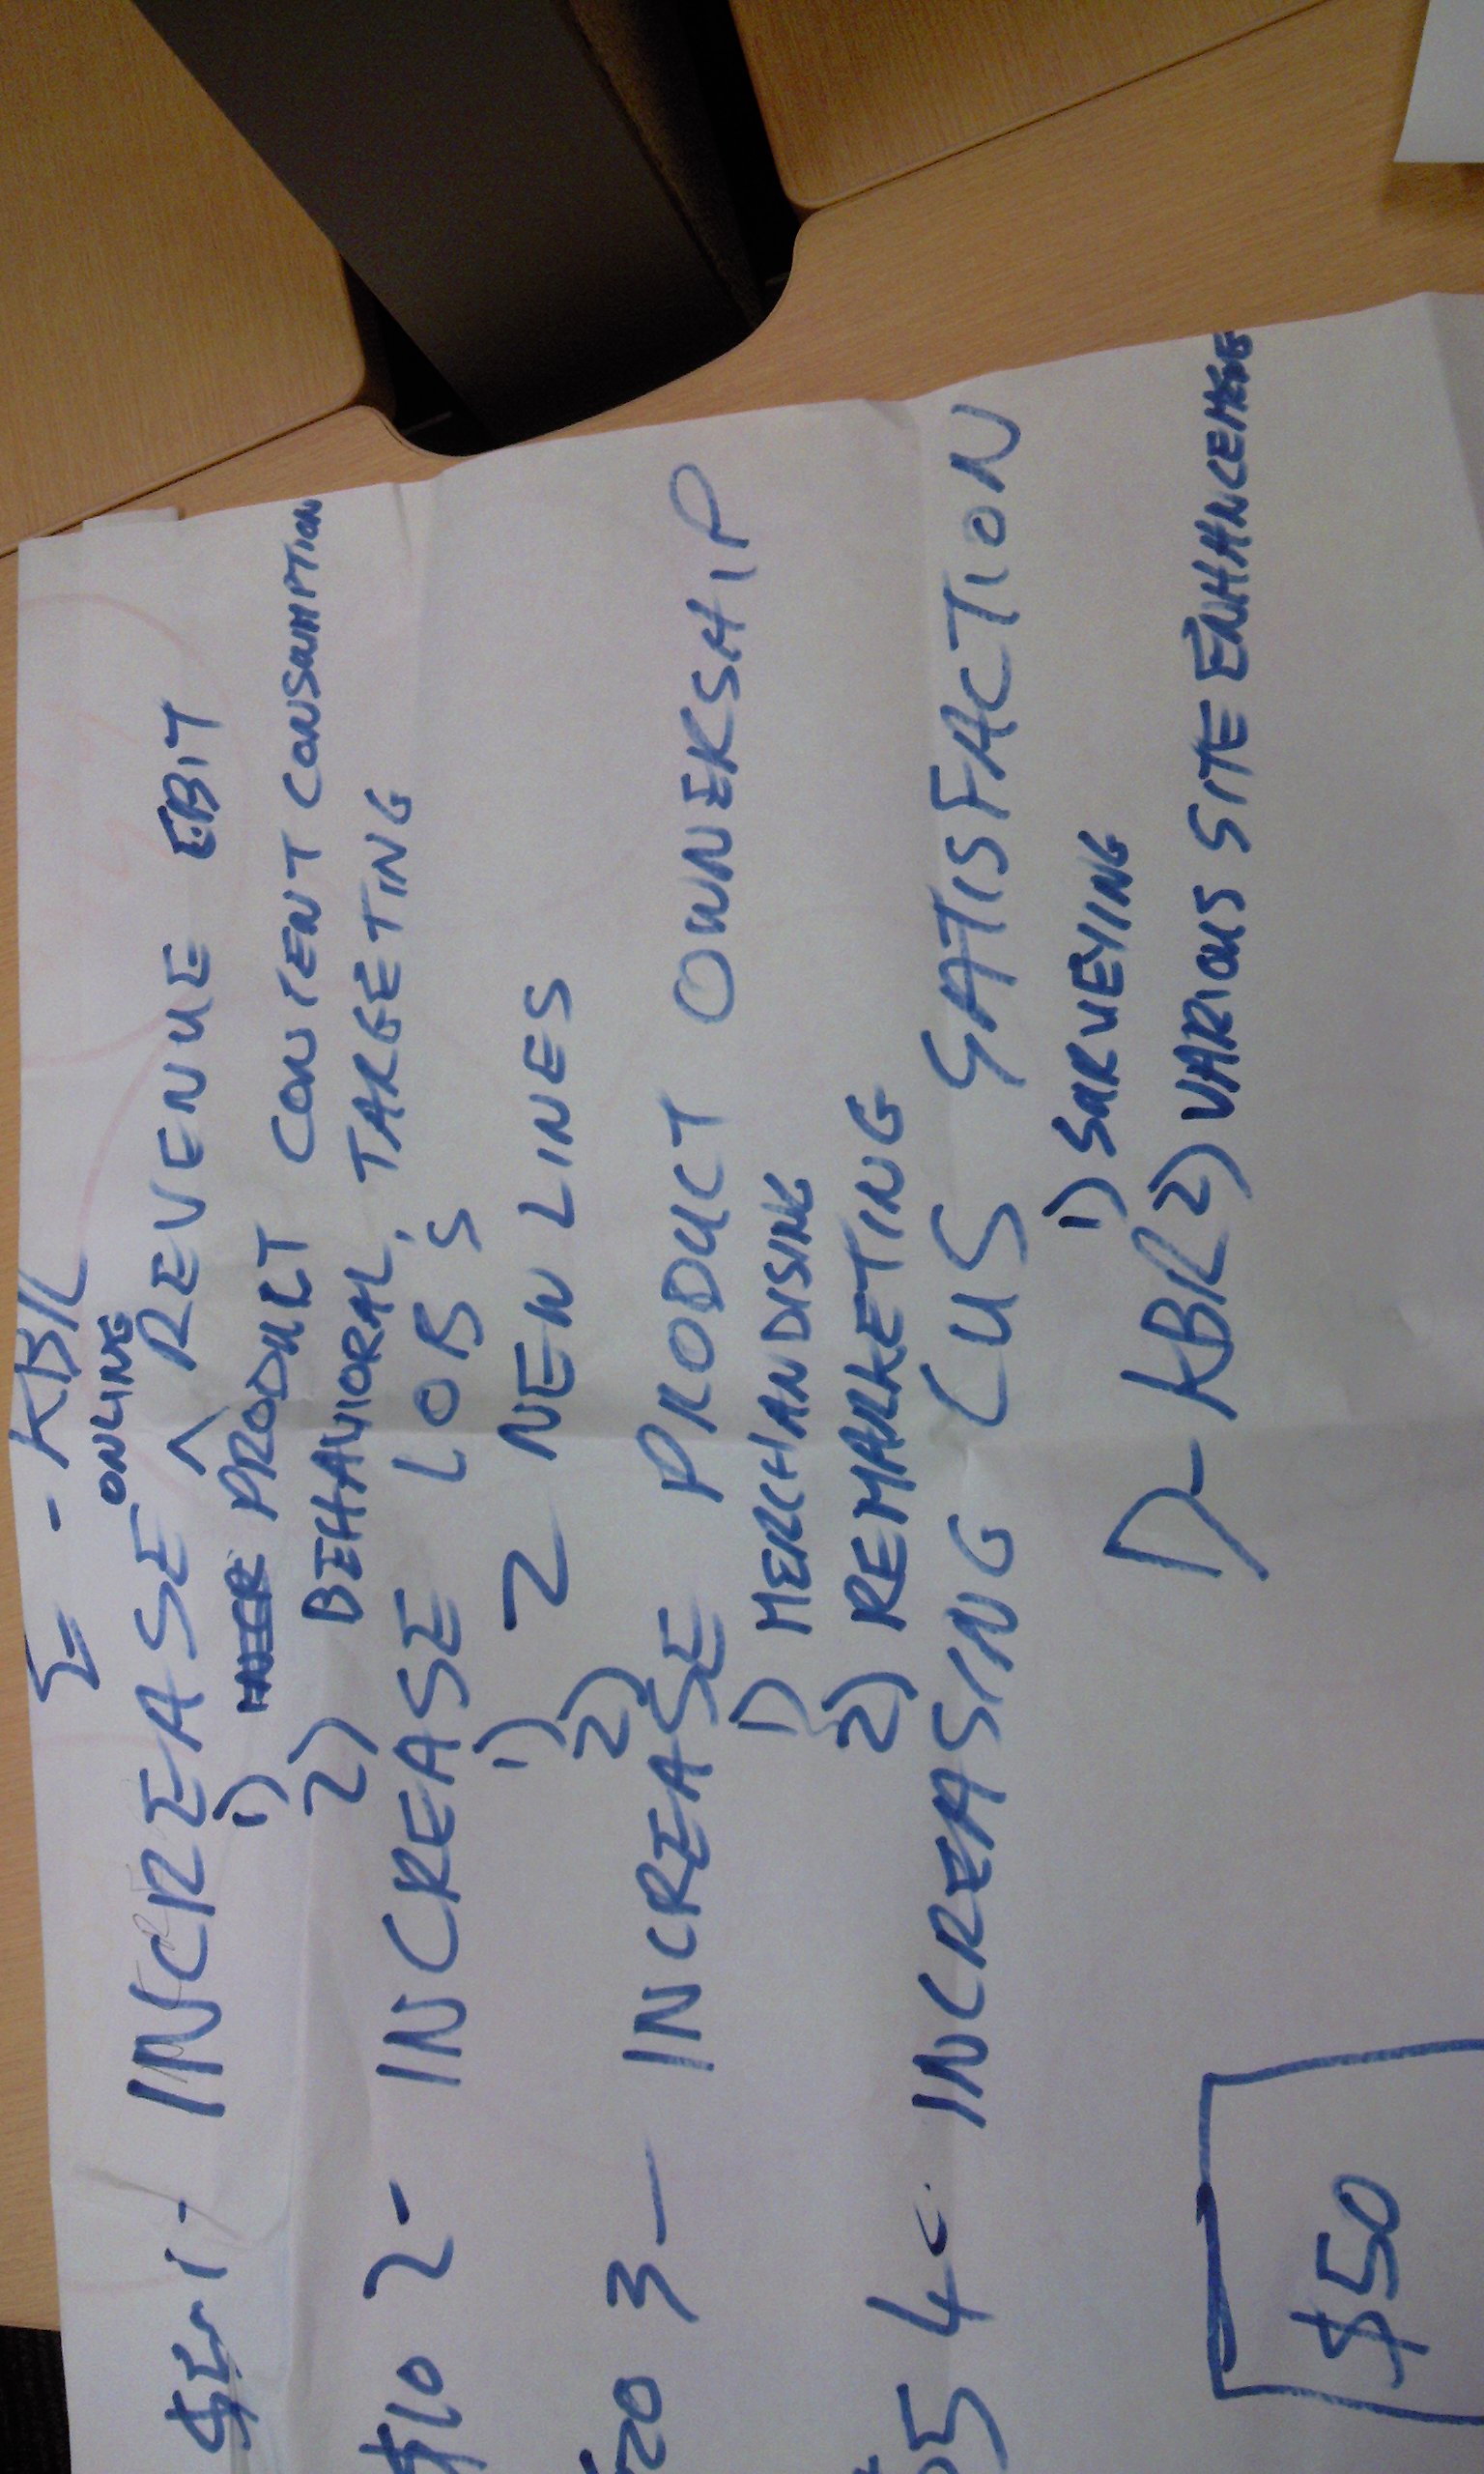 Σ - KBR
ONLING
$5 1- INCREASE ^ REVENUE EBIT
1) PRODUCT CONTENT CONSUMPTION
2) BEHAVIORAL TARGETING
$10 2- INCREASE LOB'S
1) 2 NEW LINES
2)
20 3- INCREASE PRODUCT OWNERSHIP
1) MERCHANDISING
2) REMARKETING
5 4- INCREASING CUS SATISFACTION
1) SURVEYING
KBR 2) VARIOUS SITE ENHANCEMEN
$50